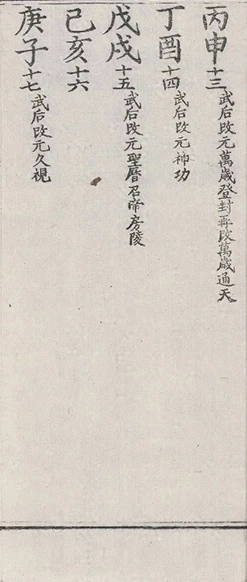 丙申十三武后改元萬歲登封再改萬歲通天
丁酉十四武后改元神功
戊戌十五武后改元聖曆召帝房陵
己亥十六
庚子十七武后改元久視